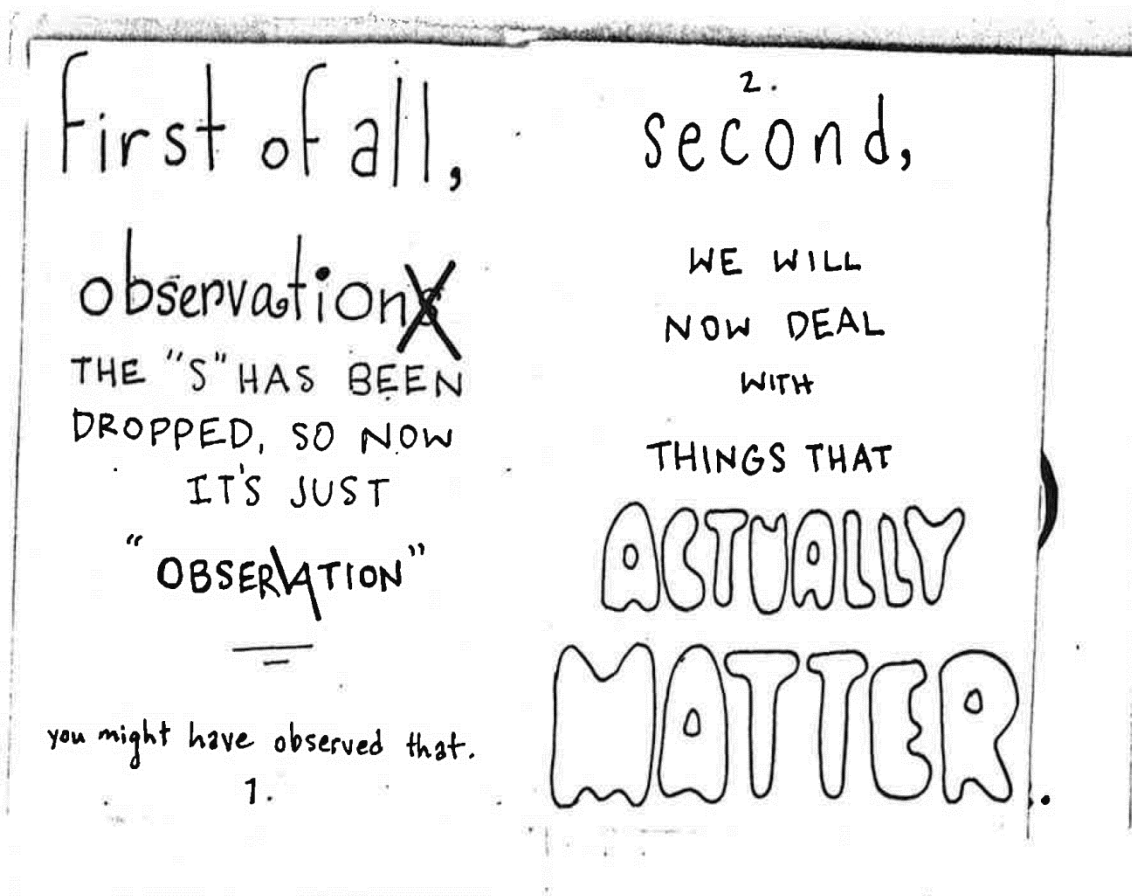 first of all,
observations
THE "S" HAS BEEN
DROPPED, SO NOW
IT'S JUST
"OBSERVATION"
you might have observed that.
1.
2.
second,
WE WILL
NOW DEAL
WITH
THINGS THAT
ACTUALLY
MATTER.